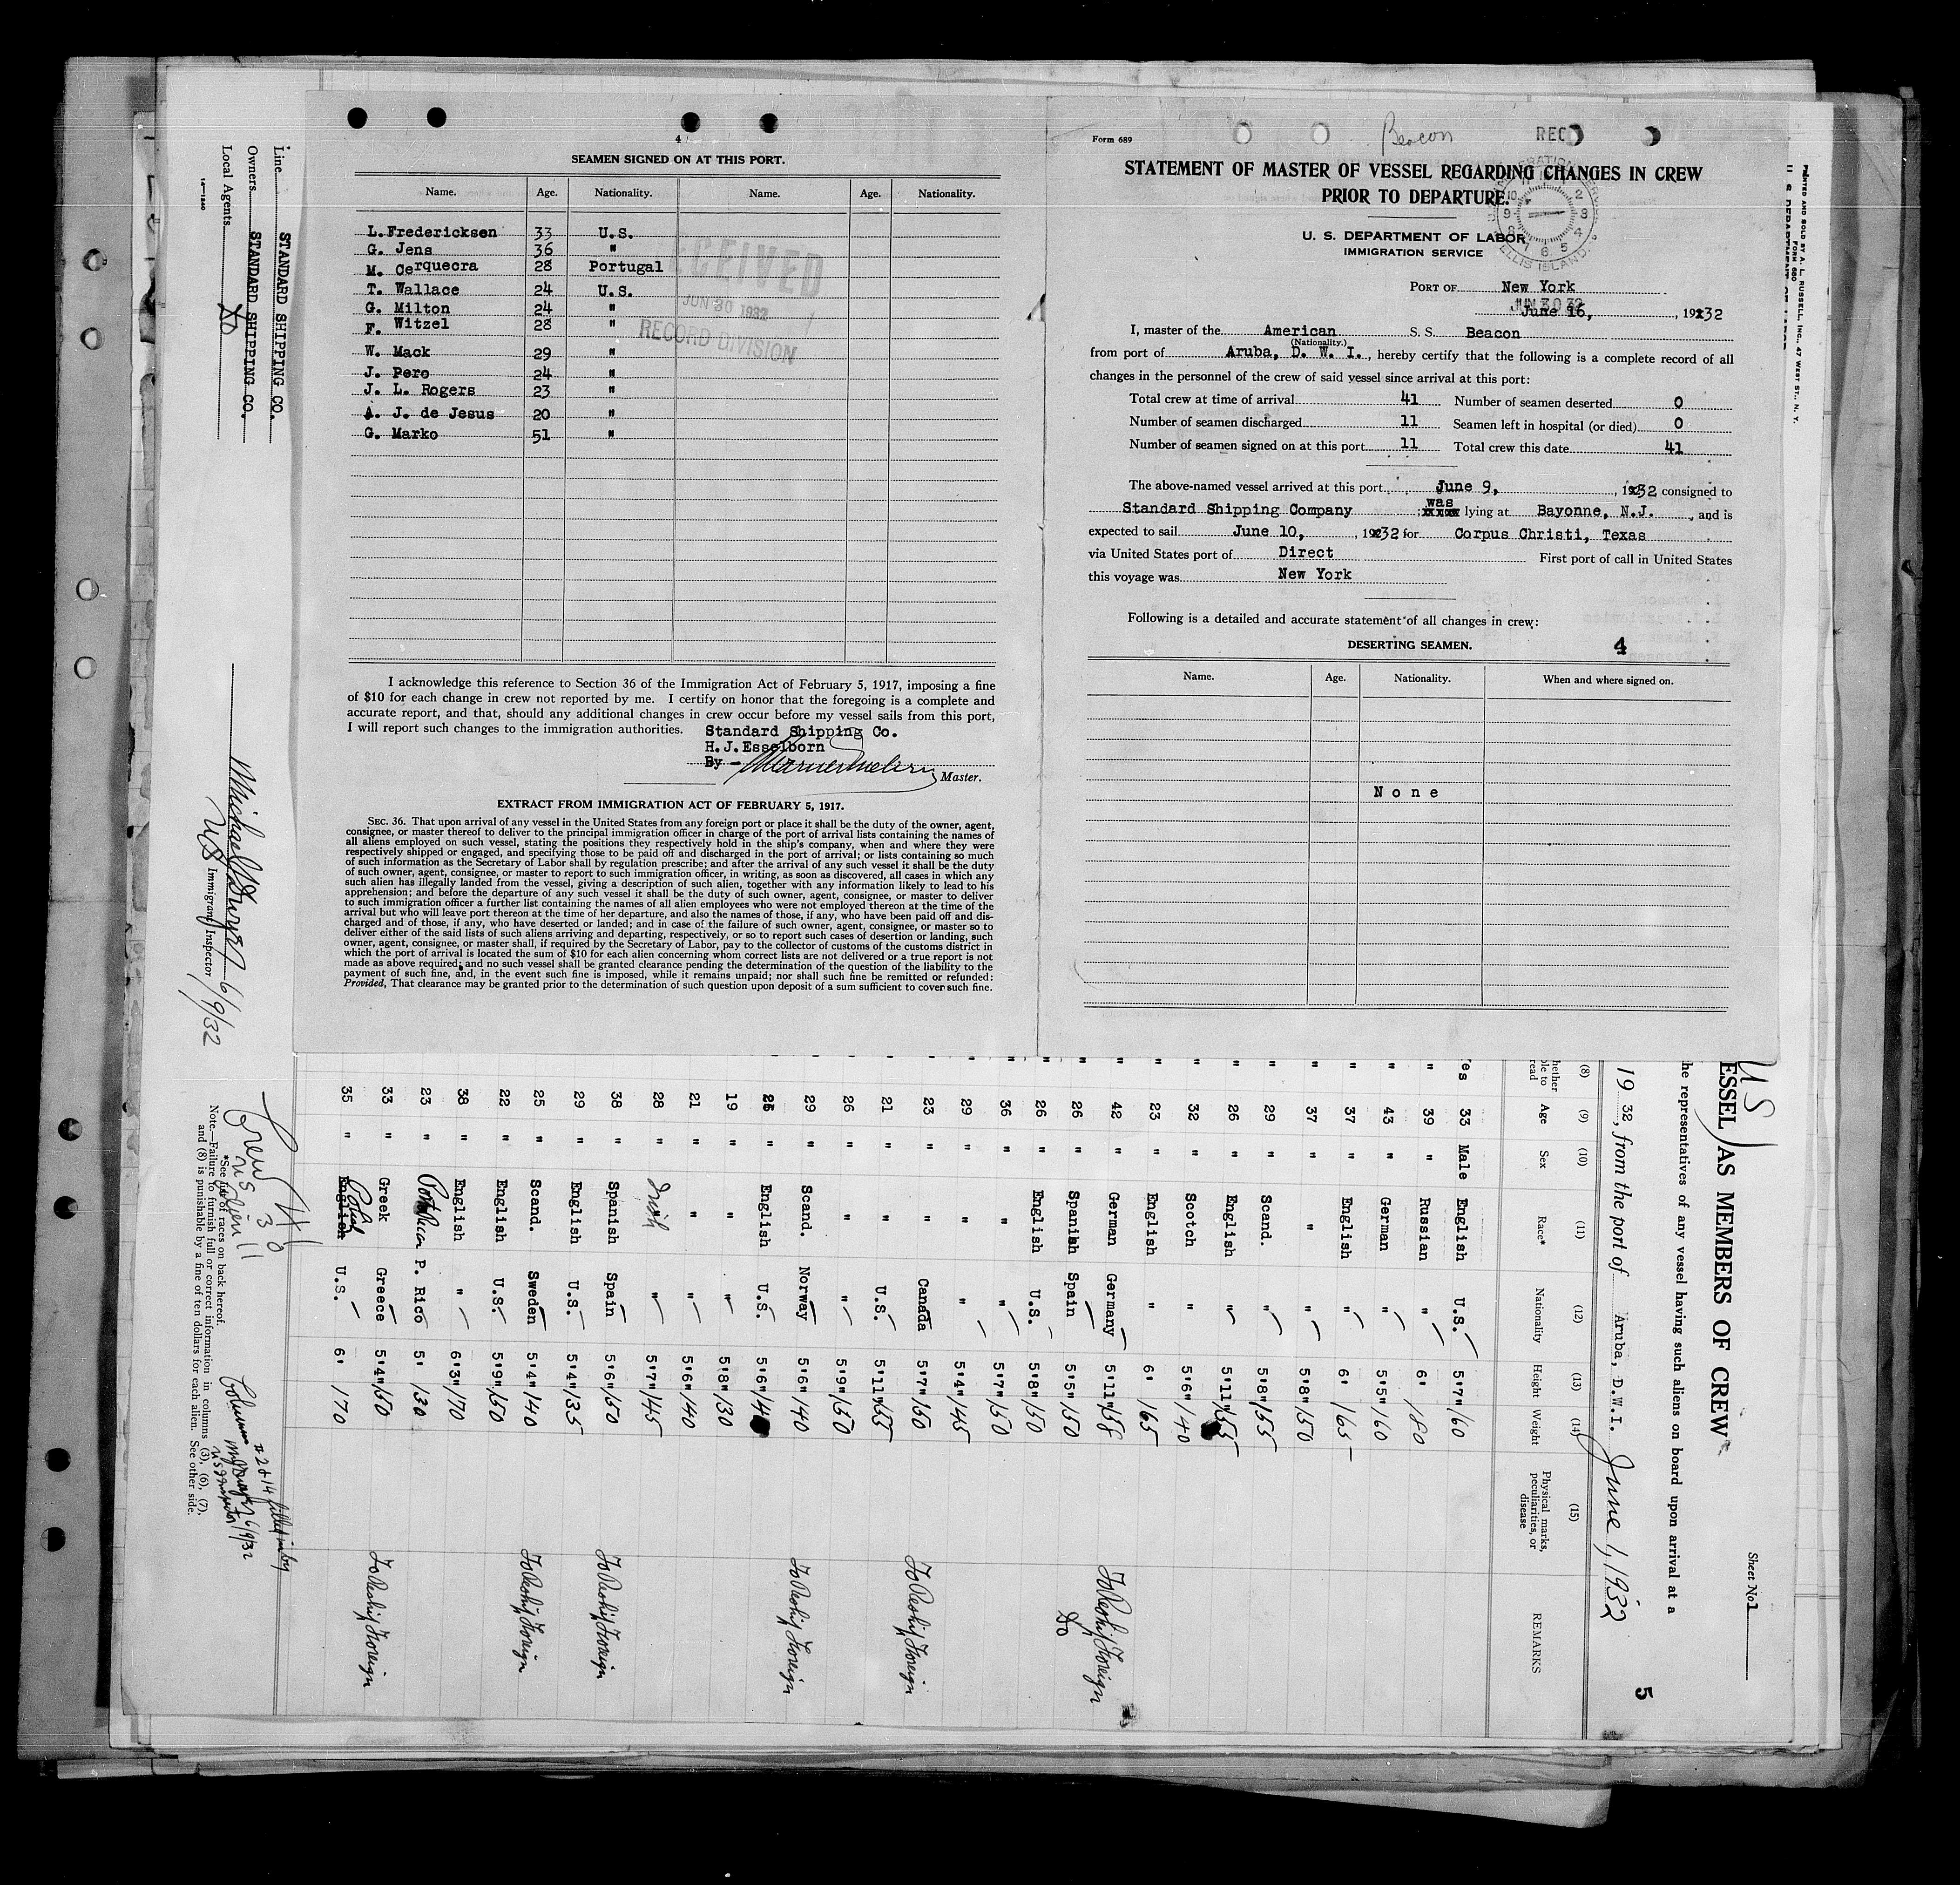 4
SEAMEN SIGNED ON AT THIS PORT.
Name. Age. Nationality. Name. Age. Nationality.
L. Fredericksen 33 U.S.
G. Jens 36 "
M. Cerquecra 28 Portugal
T. Wallace 24 U.S.
G. Milton 24 "
F. Witzel 28 "
W. Mack 29 "
J. Pero 24 "
J. L. Rogers 23 "
A. J. de Jesus 20 "
G. Marko 51 "
RECEIVED
JUN 30 1932
RECORD DIVISION
I acknowledge this reference to Section 36 of the Immigration Act of February 5, 1917, imposing a fine
of $10 for each change in crew not reported by me. I certify on honor that the foregoing is a complete and
accurate report, and that, should any additional changes in crew occur before my vessel sails from this port,
I will report such changes to the immigration authorities.
Standard Shipping Co.
H.J.Esselborn
By Master.
EXTRACT FROM IMMIGRATION ACT OF FEBRUARY 5, 1917.
SEC. 36. That upon arrival of any vessel in the United States from any foreign port or place it shall be the duty of the owner, agent,
consignee, or master thereof to deliver to the principal immigration officer in charge of the port of arrival lists containing the names of
all aliens employed on such vessel, stating the positions they respectively hold in the ship's company, when and where they were
respectively shipped or engaged, and specifying those to be paid off and discharged in the port of arrival; or lists containing so much
of such information as the Secretary of Labor shall by regulation prescribe; and after the arrival of any such vessel it shall be the duty
of such owner, agent, consignee, or master to report to such immigration officer, in writing, as soon as discovered, all cases in which any
such alien has illegally landed from the vessel, giving a description of such alien, together with any information likely to lead to his
apprehension; and before the departure of any such vessel it shall be the duty of such owner, agent, consignee, or master to deliver
to such immigration officer a further list containing the names of all alien employees who were not employed thereon at the time of the
arrival but who will leave port thereon at the time of her departure, and also the names of those, if any, who have been paid off and dis-
charged and of those, if any, who have deserted or landed; and in case of the failure of such owner, agent, consignee, or master so to
deliver either of the said lists of such aliens arriving and departing, respectively, or so to report such cases of desertion or landing, such
owner, agent, consignee, or master shall, if required by the Secretary of Labor, pay to the collector of customs of the customs district in
which the port of arrival is located the sum of $10 for each alien concerning whom correct lists are not delivered or a true report is not
made as above required; and no such vessel shall be granted clearance pending the determination of the question of the liability to the
payment of such fine, and, in the event such fine is imposed, while it remains unpaid; nor shall such fine be remitted or refunded:
Provided, That clearance may be granted prior to the determination of such question upon deposit of a sum sufficient to cover such fine.
Form 689
Beacon
REC
STATEMENT OF MASTER OF VESSEL REGARDING CHANGES IN CREW
PRIOR TO DEPARTURE.
U. S. DEPARTMENT OF LABOR
IMMIGRATION SERVICE
ELLIS ISLAND.
PORT OF New York
JUN 30 32
June 16, 1932
I, master of the American S. S. Beacon
(Nationality.)
from port of Aruba, D. W. I., hereby certify that the following is a complete record of all
changes in the personnel of the crew of said vessel since arrival at this port:
Total crew at time of arrival 41 Number of seamen deserted 0
Number of seamen discharged 11 Seamen left in hospital (or died) 0
Number of seamen signed on at this port 11 Total crew this date 41
The above-named vessel arrived at this port June 9, 1932 consigned to
Standard Shipping Company ; was lying at Bayonne, N.J., and is
expected to sail June 10, 1932 for Corpus Christi, Texas
via United States port of Direct First port of call in United States
this voyage was New York
Following is a detailed and accurate statement of all changes in crew:
DESERTING SEAMEN. 4
Name. Age. Nationality. When and where signed on.
None
PRINTED AND SOLD BY A. L. RUSSELL, INC., 47 WEST ST., N. Y.
FORM 680
U. S. DEPARTMENT OF LABOR
Line STANDARD SHIPPING CO.
Owners STANDARD SHIPPING CO.
Local Agents DO
14-1240
Immigrant Inspector
6/9/32
US
ESSEL) AS MEMBERS OF CREW
Sheet No 1
he representatives of any vessel having such aliens on board upon arrival at a
1932, from the port of Aruba, D.W.I. June 1, 1932
5
(8) (9) (10) (11) (12) (13) (14) (15)
hether ble to read Age Sex Race* Nationality Height Weight Physical marks, peculiarities, or disease REMARKS
Yes 33 Male English U.S. 5'7" 160
" 39 " Russian " 6' 180
" 43 " German " 5'5" 160
" 37 " English " 6' 165
" 37 " " " 5'8" 150
" 29 " Scand. " 5'8" 155
" 26 " English " 5'11" 155
" 32 " Scotch " 5'6" 140
" 23 " English " 6' 165
" 42 " German Germany 5'11" 158 To Reship Foreign
" 26 " Spanish Spain 5'5" 150 Do
" 26 " English U.S. 5'8" 150
" 36 " " " 5'7" 150
" 29 " " " 5'4" 145
" 23 " " Canada 5'7" 150 To Reship Foreign
" 21 " " U.S. 5'11" 155
" 26 " " " 5'9" 150
" 29 " Scand. Norway 5'6" 140 To Reship Foreign
" 25 " English U.S. 5'6" 14
19 " " " 5'8" 130
21 " " " 5'6" 140
28 " Irish " 5'7" 145
38 " Spanish Spain 5'6" 150 To Reship Foreign
29 " English U.S. 5'4" 135
25 " Scand. Sweden 5'4" 140 To Reship Foreign
22 " English U.S. 5'9" 150
38 " English " 6'3" 170
23 " Porto Rican P. Rico 5' 130
33 " Greek Greece 5'4" 150 To Reship Foreign
35 " English Polish U.S. 6' 170
Crew 41
US 30
Alien 11
*See list of races on back hereof.
Note.—Failure to furnish full or correct information in columns (3), (6), (7),
and (8) is punishable by a fine of ten dollars for each alien. See other side.
Columns #2 & 14 filled in by
US Inspector 6/9/32